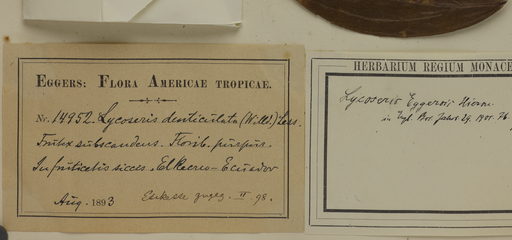 EGGERS: FLORA AMERICAE TROPICAE.
Nr. 14952. Lycoseris denticulata (Willd.) Less.
Frutex subscandens. Florib. purpur.
In fruticetis siccis. El Recreo - Ecuador
Aug. 1893
II. 98.
HERBARIUM REGIUM MONACE
Lycoseris Eggersii Hieron.
in Engl. Bot. Jahrb. 29. 1901. 76